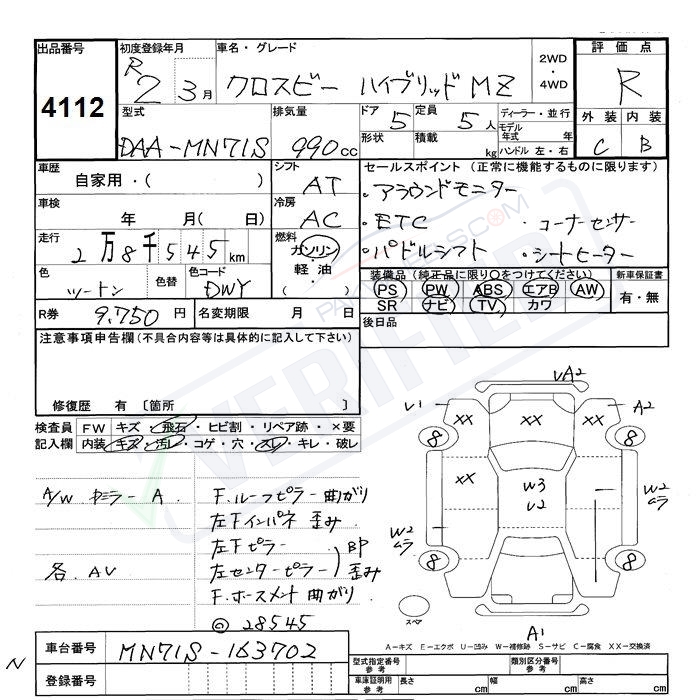 出品番号 4112
初度登録年月 R 2 3月
車名・グレード クロスビー ハイブリッド MZ
2WD・4WD
評価点 R
外装 内装
C B
型式 DAA-MN71S
排気量 990cc
ドア 5 定員 5人
形状 積載 kg
ディーラー・並行
モデル年式 年
ハンドル 左・右
車歴 自家用・( )
シフト AT
セールスポイント(正常に機能するものに限ります)
・アラウンドモニター
・ETC ・コーナーセンサー
・パドルシフト ・シートヒーター
車検 年 月( 日)
冷房 AC
走行 2万8千545km
燃料 ガソリン・軽油・( )
色 ツートン 色替 色コード DWY
装備品(純正品に限り○をつけてください)
PS PW ABS エアB AW
SR ナビ TV カワ
新車保証書 有・無
R券 9.750円 名変期限 月 日
後日品
注意事項申告欄(不具合内容等は具体的に記入して下さい)
修復歴 有〔箇所 〕
検査員記入欄
FW キズ・飛石・ヒビ割・リペア跡・×要
内装 キズ・汚レ・コゲ・穴・スレ・キレ・破レ
A/W カラー A
各. AV
F.ルーフピラー曲がり
左Fインパネ歪み
左Fピラー BP
左センターピラー 歪み
F.ホースメント曲がり
◎ 28545
VA2
V1 XX XX XX A2
8 8
XX W3 V2
W2 ムラ
W2 ムラ
8 8
スペア
A1
A-キズ E-エクボ U-凹み W-補修跡 S-サビ C-腐食 XX-交換済
車台番号 MN71S-163702
N
登録番号
型式指定番号 参考
類別区分番号 参考
車庫証明用 参考 長さ cm 幅 cm 高さ cm
VERIFIED